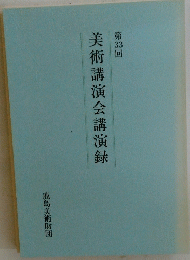 第33回
美術講演会講演録
鹿島美術財団